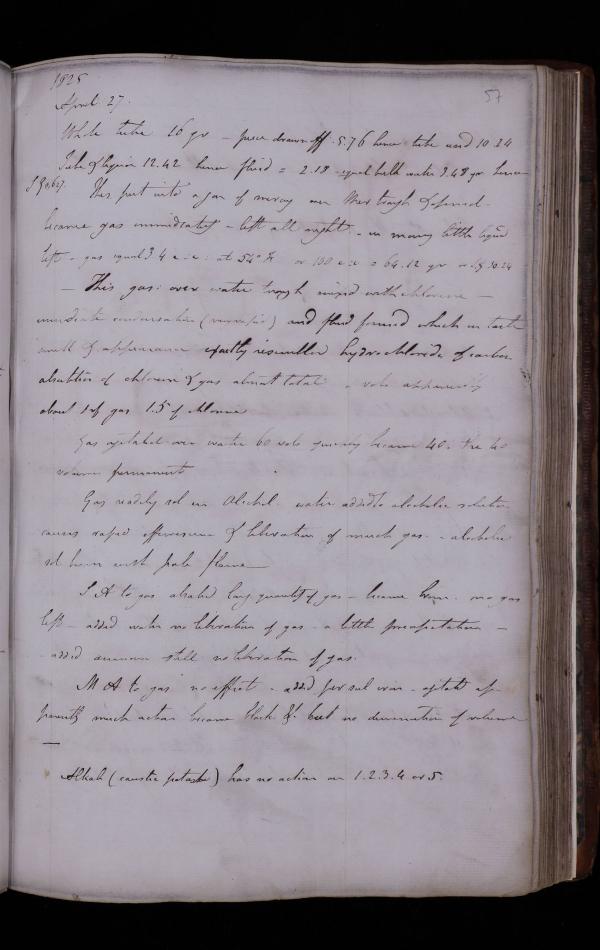 1825
57
April 27.
Whole tube 16 gr - piece drawn off 5.76 hence tube used 10.24
Tube & liquor 12.42 hence fluid = 2.18 equal bulk water 3.48 gr hence
S G 0.627. This put into a jar of mercury over Mer trough & opened -
became gas immediately - left all night - very little liquid
left - gas equal 3.4 c.i: at 54° F or 100 c.i = 64.12 gr
- This gas over water trough mixed with chlorine -
immediate condensation and fluid formed which in taste
smell & appearance exactly resembled hydrochloride of carbon
absorbtion of chlorine & gas almost total - vols apparently
about 1 of gas 1.5 of chlorine
Gas agitated over water 60 vols quickly became 40: the 40
volume permanent
Gas readily sol in Alcohol. water added to alcoholic solution
causes rapid effervescence & liberation of much gas - alcoholic
sol burns with pale flame
S A to gas absorbed large quantity of gas - became brown. no gas
left - added water no liberation of gas - a little precipitation -
- added ammonia still no liberation of gas.
M A to gas no effect - added per sul iron - agitated ap-
parently much action became black &c. but no diminution of volume
—
Alkali (caustic potash) has no action on 1.2.3.4 or 5.